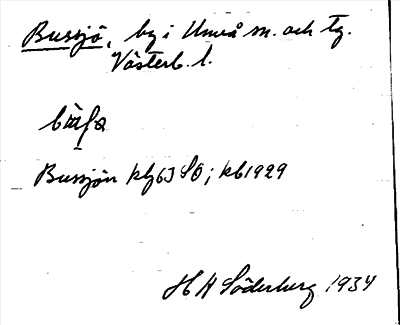 Bussjö, by i Umeå sn. och tg.
Västerb. l.
Bussjön kbg 63 SO; kb 1929
H H Söderberg 1934